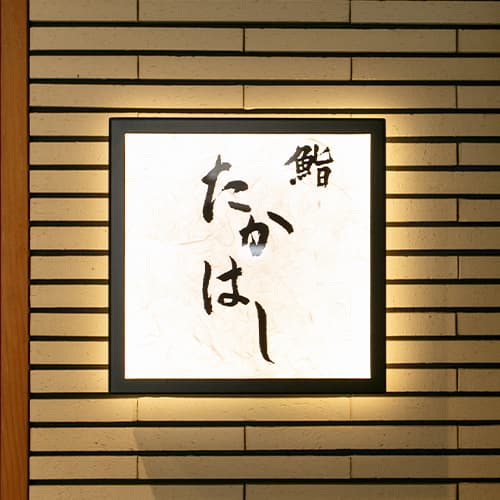 鮨
たかはし